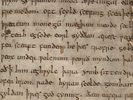 oft scyld scefing sceaþen
þreatum monegū mægþum meodo setla
of teah egsode eorl syððan ærest
fea sceaft funden he þæs frofre
weox under wolcnum weorð myndum
oð ꝥ him æghwylc þara ymb sittendra
ofer hron rade hyran scolde gomban
gyldan ꝥ wæs god cyning